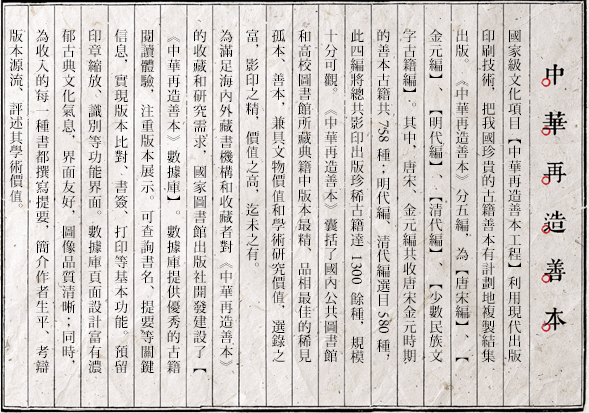 中華再造善本
國家級文化項目【中華再造善本工程】利用現代出版
印刷技術，把我國珍貴的古籍善本有計劃地複製結集
出版。《中華再造善本》分五編，為【唐宋編】、【
金元編】、【明代編】、【清代編】、【少數民族文
字古籍編】。其中，唐宋、金元編共收唐宋金元時期
的善本古籍共 758 種；明代編、清代編選目 580 種，
此四編將總共影印出版珍稀古籍達 1300 餘種，規模
十分可觀。《中華再造善本》囊括了國內公共圖書館
和高校圖書館所藏典籍中版本最精、品相最佳的稀見
孤本、善本，兼具文物價值和學術研究價值，選錄之
富，影印之精，價值之高，迄未之有。
為滿足海內外藏書機構和收藏者對《中華再造善本》
的收藏和研究需求，國家圖書館出版社開發建設了【
《中華再造善本》數據庫】。數據庫提供優秀的古籍
閱讀體驗，注重版本展示。可查詢書名、提要等關鍵
信息，實現版本比對、書簽、打印等基本功能。預留
印章縮放、識別等功能界面。數據庫頁面設計富有濃
郁古典文化氣息，界面友好，圖像品質清晰；同時，
為收入的每一種書都撰寫提要，簡介作者生平、考辯
版本源流、評述其學術價值。